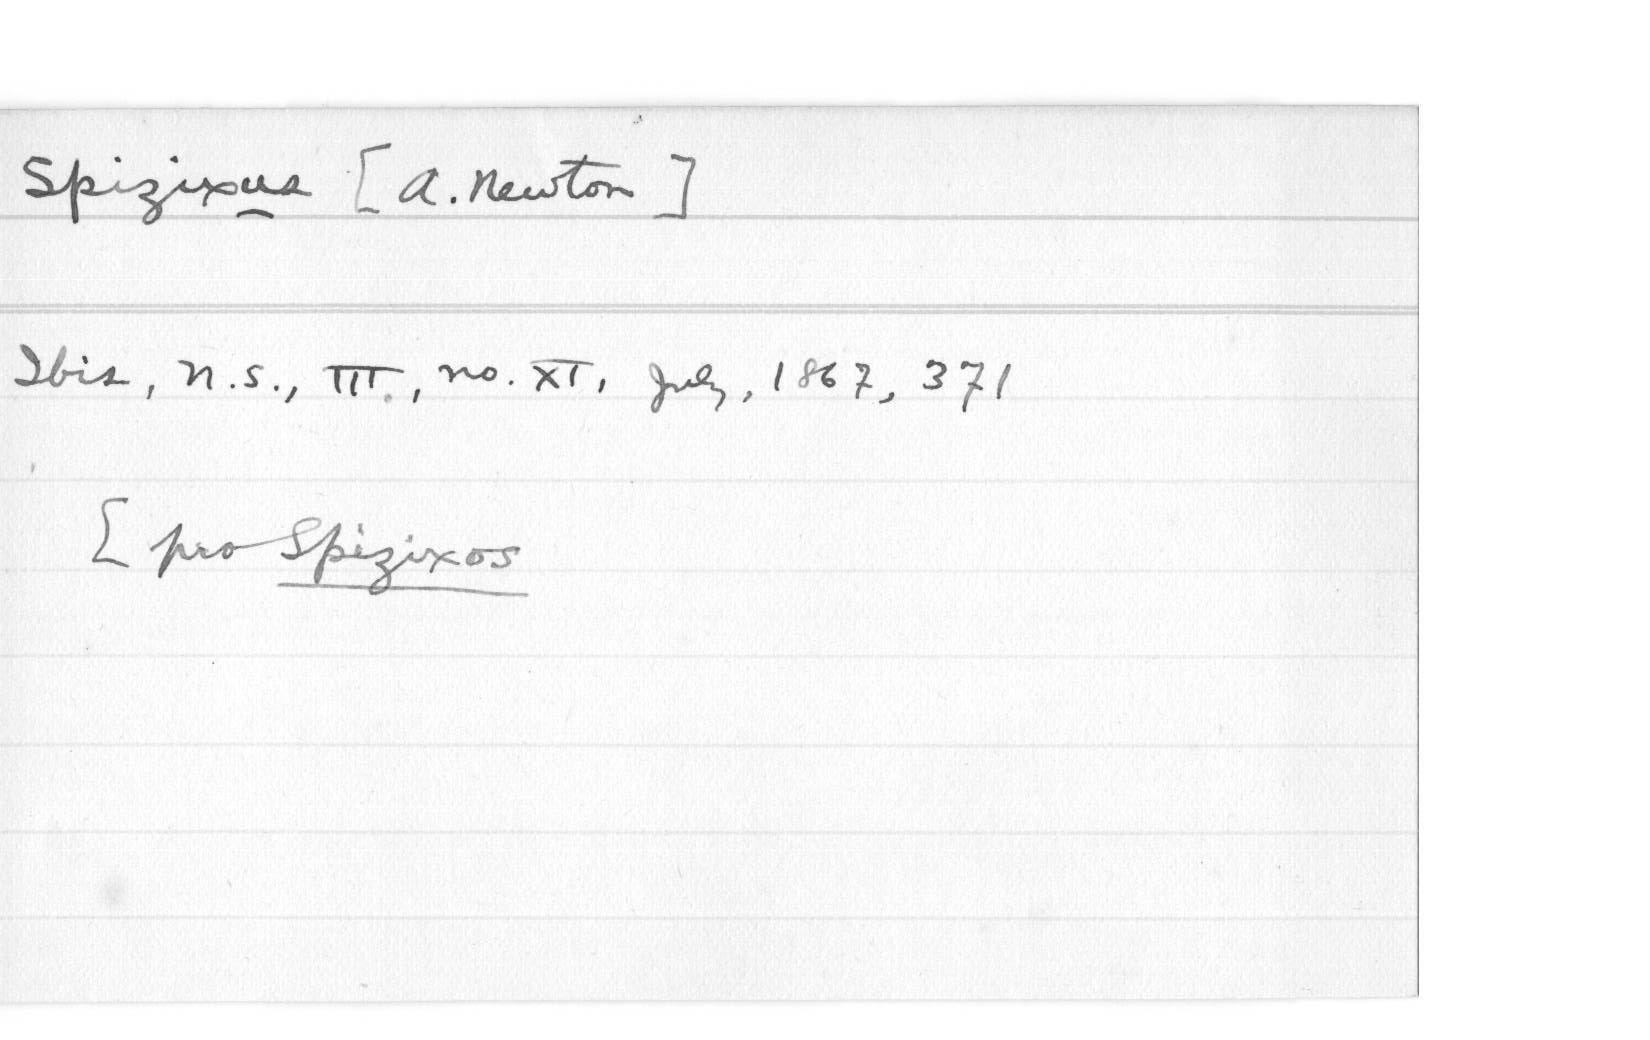 Spizixus [A. Newton]
Ibis, n.s., III, no. XI, July, 1867, 371
[pro Spizixos